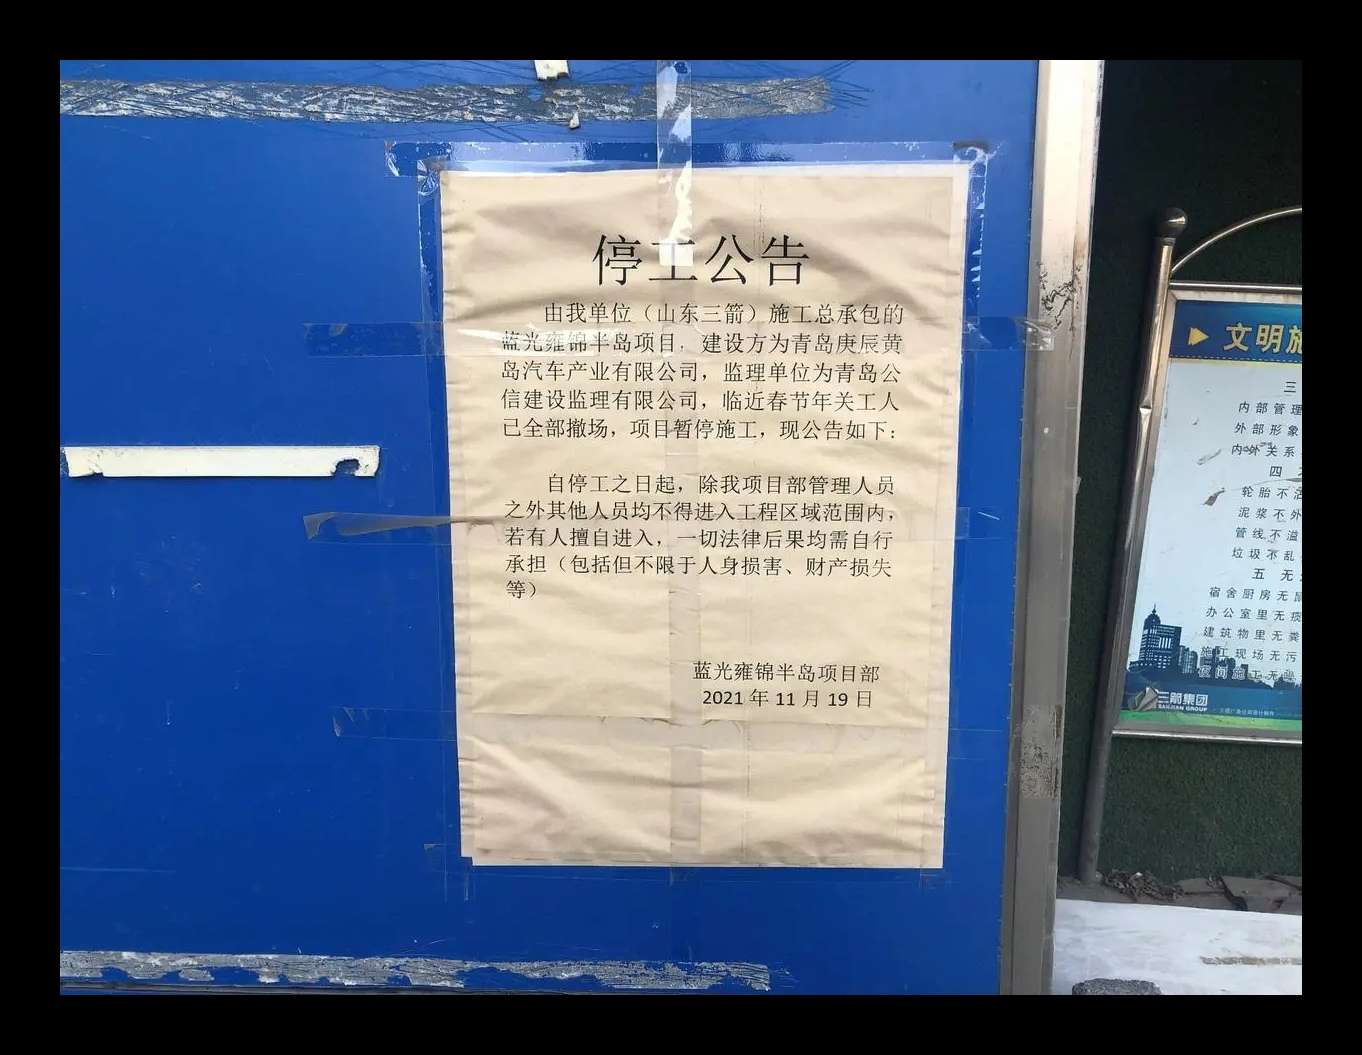 停工公告
由我单位（山东三箭）施工总承包的
蓝光雍锦半岛项目，建设方为青岛庚辰黄
岛汽车产业有限公司，监理单位为青岛公
信建设监理有限公司，临近春节年关工人
已全部撤场，项目暂停施工，现公告如下：
自停工之日起，除我项目部管理人员
之外其他人员均不得进入工程区域范围内，
若有人擅自进入，一切法律后果均需自行
承担（包括但不限于人身损害、财产损失
等）
蓝光雍锦半岛项目部
2021 年 11 月 19 日
文明施
三
内部管理
外部形象
内外关系
四
轮胎不
泥浆不外
管线不溢
垃圾不乱
五 无
宿舍厨房无
办公室里无痰
建筑物里无粪
施工现场无污
夜间施工无
三箭集团
SANJIAN GROUP